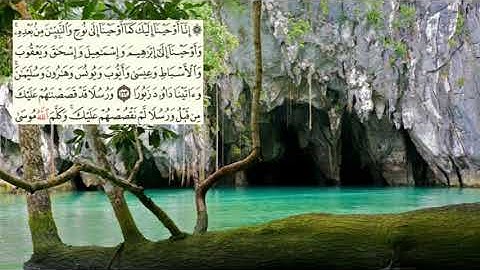 ۞ إِنَّآ أَوْحَيْنَآ إِلَيْكَ كَمَآ أَوْحَيْنَآ إِلَىٰ نُوحٍ وَٱلنَّبِيِّـۧنَ مِنۢ بَعْدِهِۦ ۚ
وَأَوْحَيْنَآ إِلَىٰٓ إِبْرَٰهِيمَ وَإِسْمَـٰعِيلَ وَإِسْحَـٰقَ وَيَعْقُوبَ
وَٱلْأَسْبَاطِ وَعِيسَىٰ وَأَيُّوبَ وَيُونُسَ وَهَـٰرُونَ وَسُلَيْمَـٰنَ ۚ
وَءَاتَيْنَا دَاوُۥدَ زَبُورًا ١٦٣ وَرُسُلًا قَدْ قَصَصْنَـٰهُمْ عَلَيْكَ
مِن قَبْلُ وَرُسُلًا لَّمْ نَقْصُصْهُمْ عَلَيْكَ ۚ وَكَلَّمَ ٱللَّهُ مُوسَىٰ